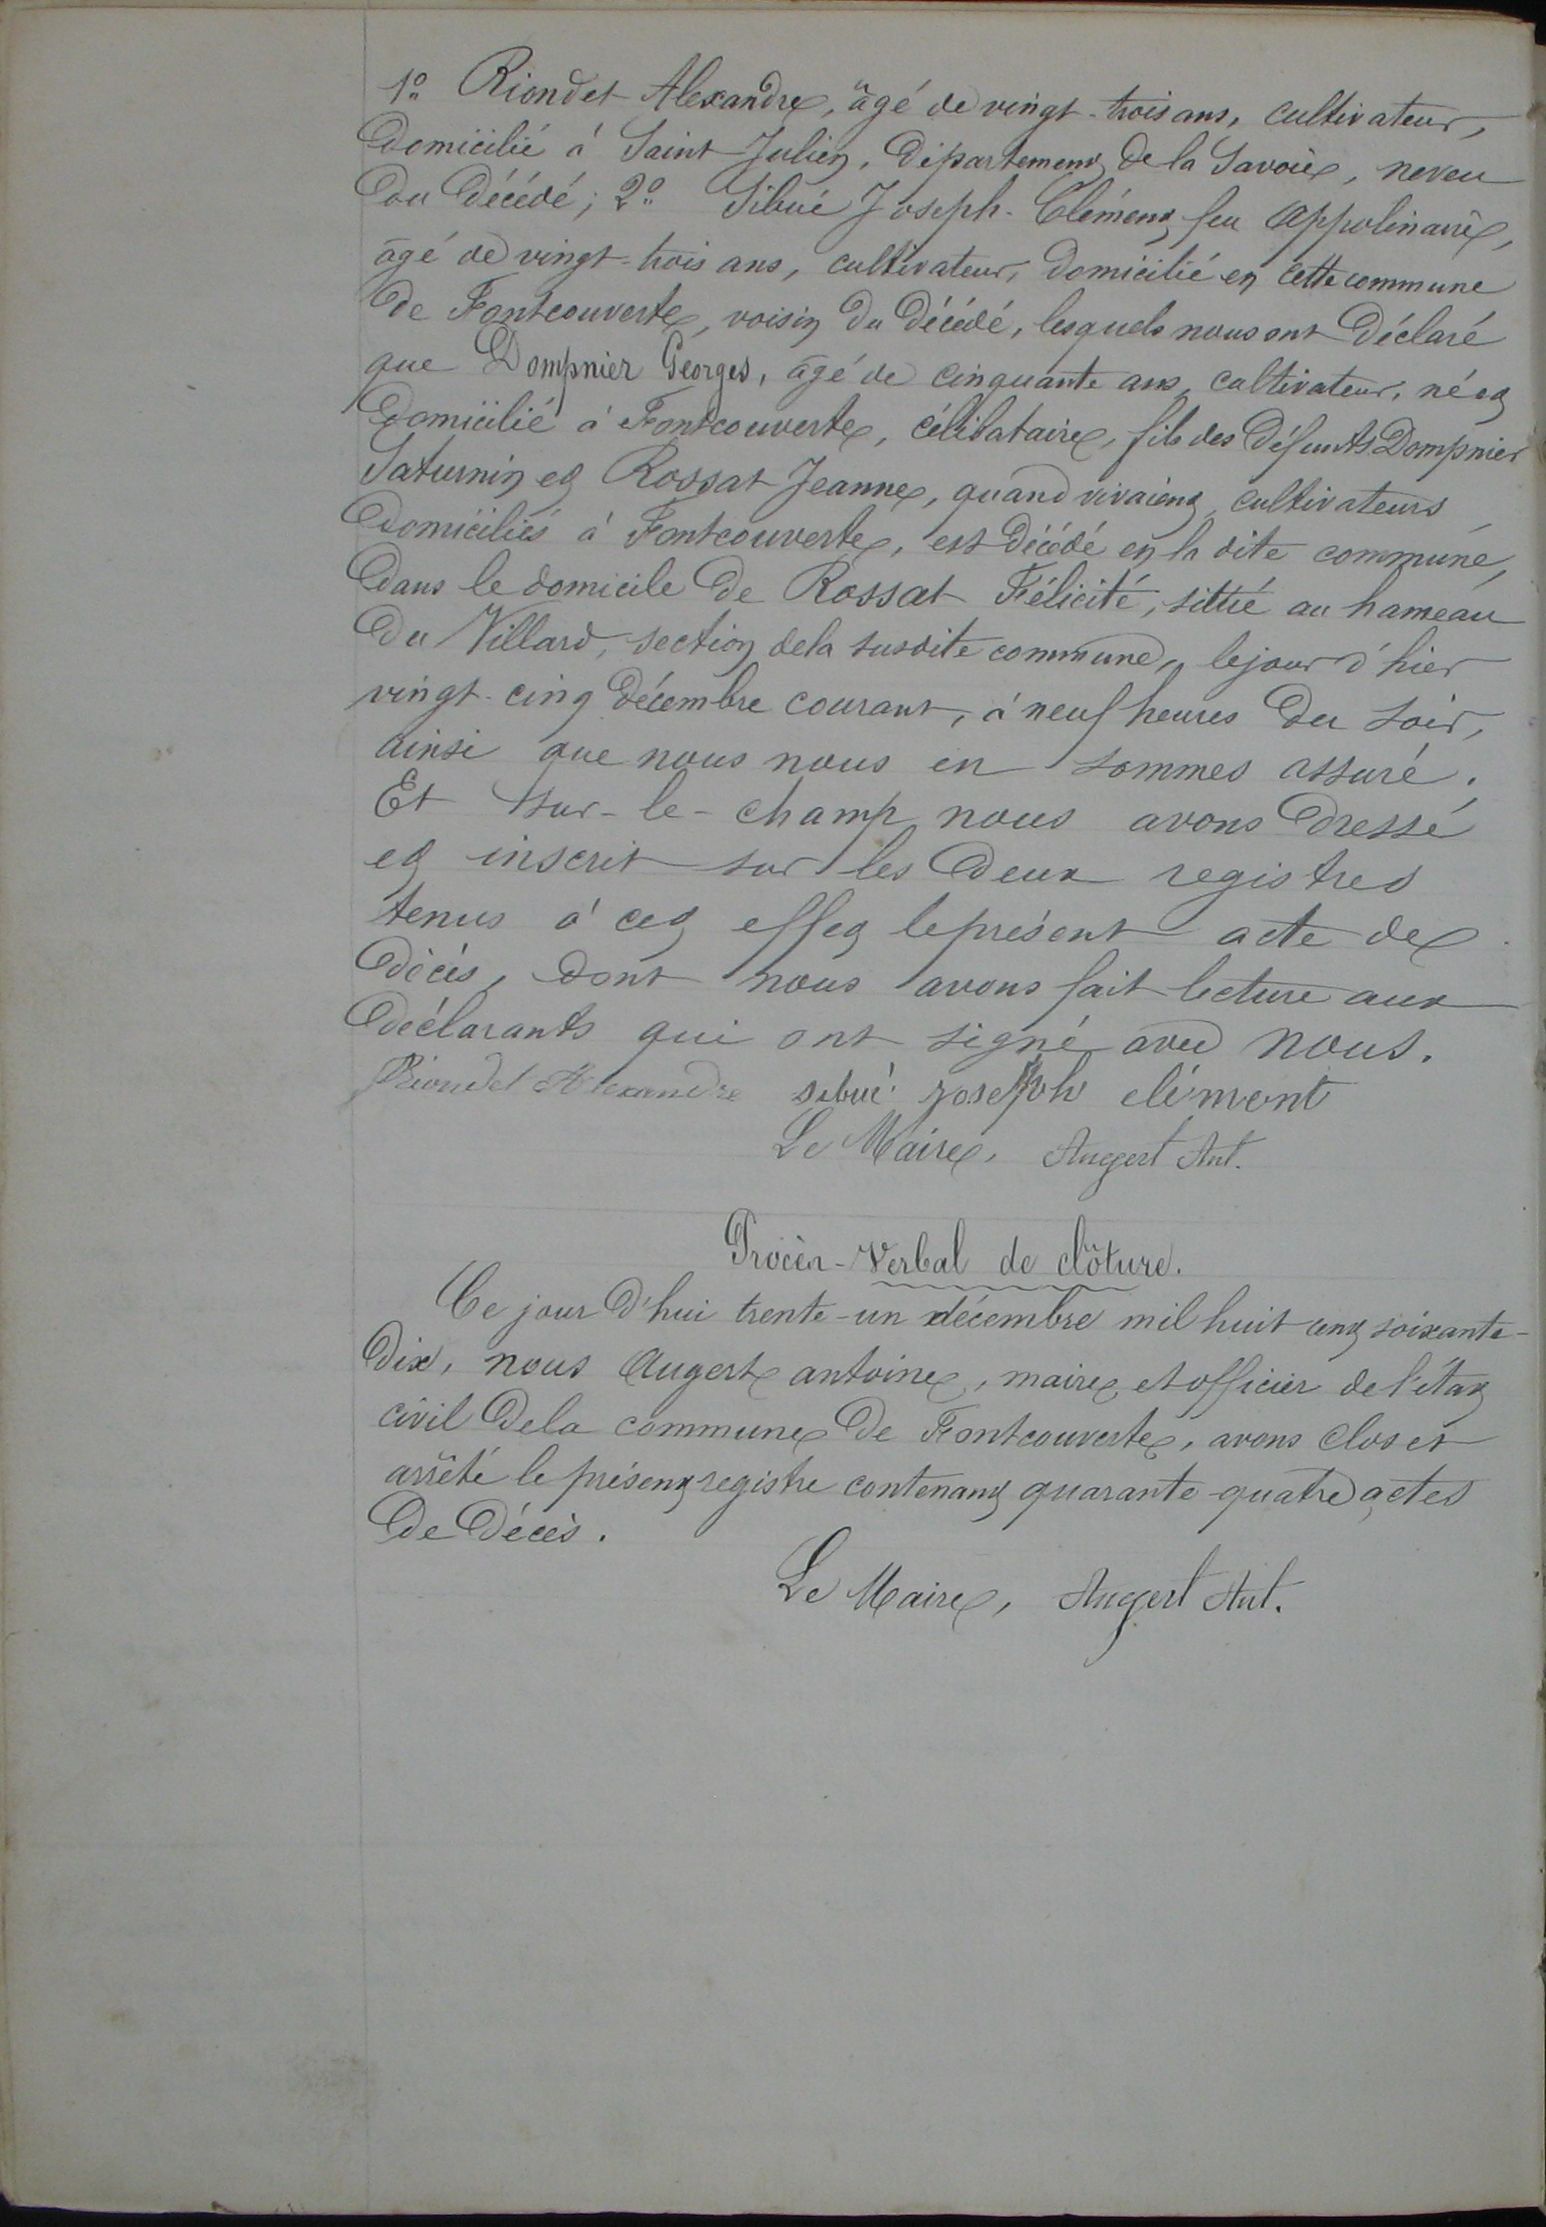 1º Riondet Alexandre, âgé de vingt-trois ans, cultivateur,
domicilié à Saint Julien, département de la Savoie, neveu
du décédé; 2º Sibué Joseph-Clément feu Appolinaire,
âgé de vingt-trois ans, cultivateur, domicilié en cette commune
de Fontcouverte, voisin du décédé, lesquels nous ont déclaré
que Dompnier Georges, âgé de cinquante ans, cultivateur, né et
domicilié à Fontcouverte, célibataire, fils des défunts Dompnier
Saturnin et Rossat Jeanne, quand vivaient, cultivateurs
domiciliés à Fontcouverte, est décédé en la dite commune,
dans le domicile de Rossat Félicité, sitié au hameau
du Villard, section de la susdite commune, le jour d'hier
vingt-cinq décembre courant, à neuf heures du soir,
ainsi que nous nous en sommes assuré.
Et sur-le-champ nous avons dressé
et inscrit sur les deux registres
tenus à cet effet le présent acte de
décès, dont nous avons fait lecture aux
déclarants qui ont signé avec nous.
Riondet Alexandre sibué joseph clément
Le Maire, Augert Ant.
Procès-Verbal de clôture.
Ce jour d'hui trente-un décembre mil huit cent soixante-
dix, nous Augert antoine, maire et officier de l'état
civil de la commune de Fontcouverte, avons clos et
arrêté le présent registre contenant quarante-quatre actes
de décès.
Le Maire, Augert Ant.